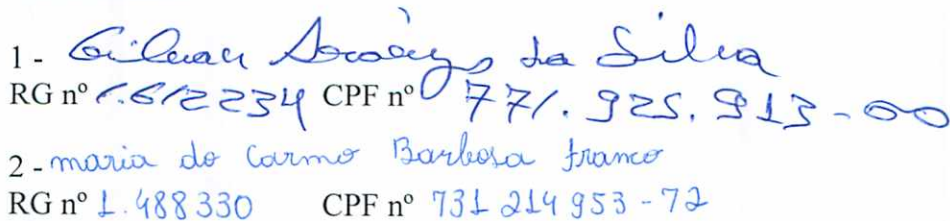 1 - Gilvan Araújo da Silva
RG nº 1.612234 CPF nº 771.925.913-00
2 - maria do Carmo Barbosa franco
RG nº 1.488330 CPF nº 731 214 953-72